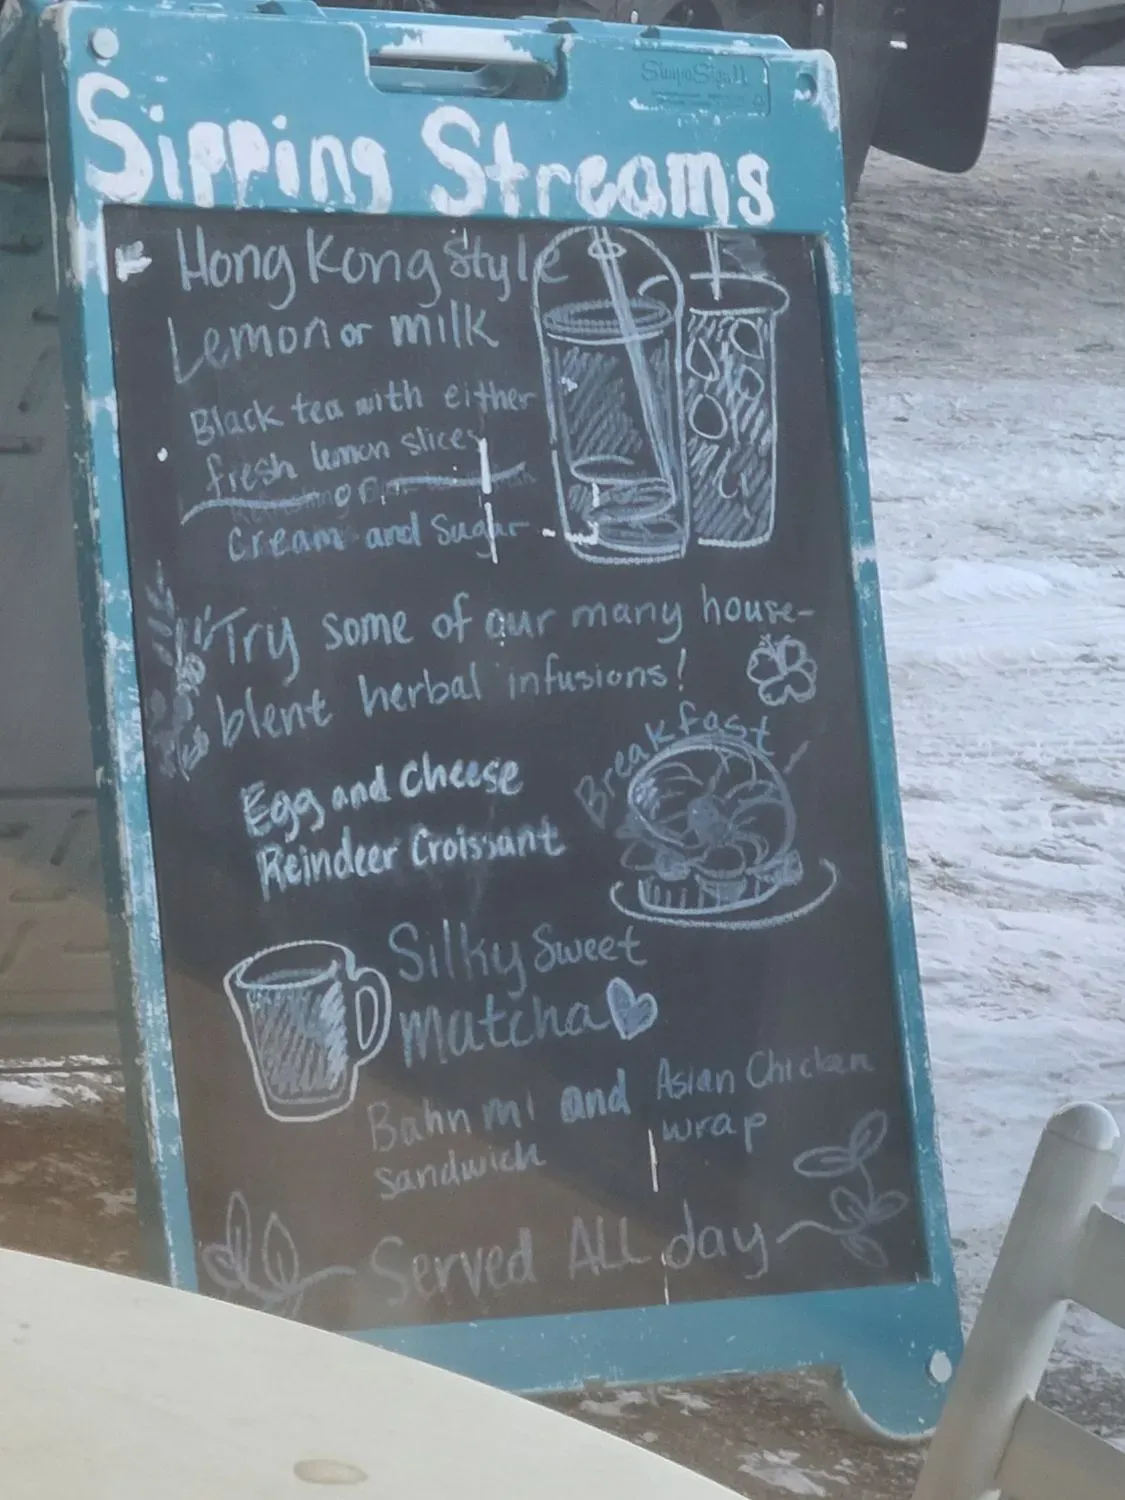 SimpoSign II
Sipping Streams
Hong Kong Style
Lemon or milk
Black tea with either
fresh lemon slices
or
cream and sugar
Try some of our many house-
blent herbal infusions!
Breakfast
Egg and Cheese
Reindeer Croissant
Silky Sweet
Matcha
Bahn mi and Asian Chicken
sandwich wrap
Served ALL day